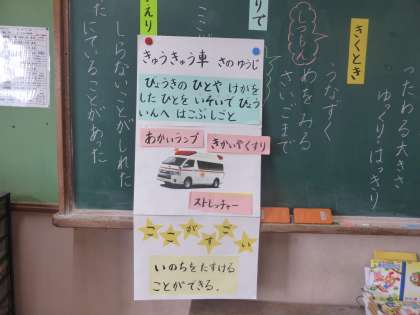 きゅうきゅう車 さの ゆうじ
びょうきの ひとや けがを
した ひとを いそいで びょう
いんへ はこぶ しごと
あかいランプ
きかいやくすり
ストレッチャー
ここがすごい
いのちを たすける
ことができる。
きくとき
つたわる大きさ
ゆっくり・はっきり
しつもん
めをみる
さいごまで
うなずく
しらないことがしれた
にていることがあった